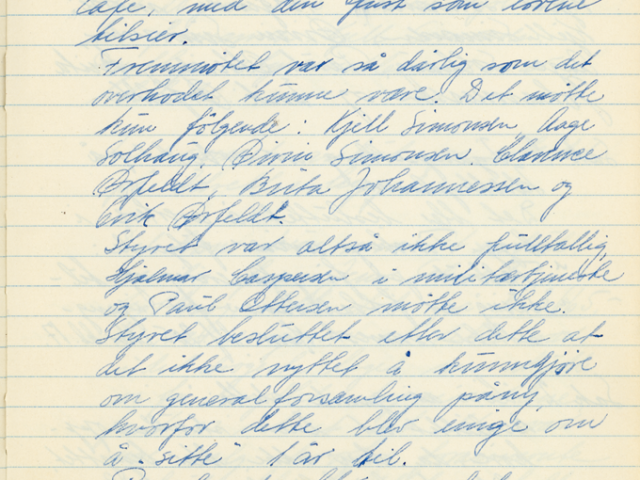 Café, med den frist som lovene
tilsier.
Fremmøtet var så dårlig som det
overhodet kunne være. Det møtte
kun følgende: Kjell Simonsen, Aage
Solhaug, Simonsen, Clarence
Ørfeldt, Brita Johannessen og
Erik Ørfeldt.
Styret var altså ikke fulltallig,
Hjalmar Caspersen i militærtjeneste
og Paul Ottersen møtte ikke.
Styret besluttet etter dette at
det ikke nyttet å kunngjøre
om generalforsamling påny,
hvorfor dette blev enige om
å "sitte" 1 år til.